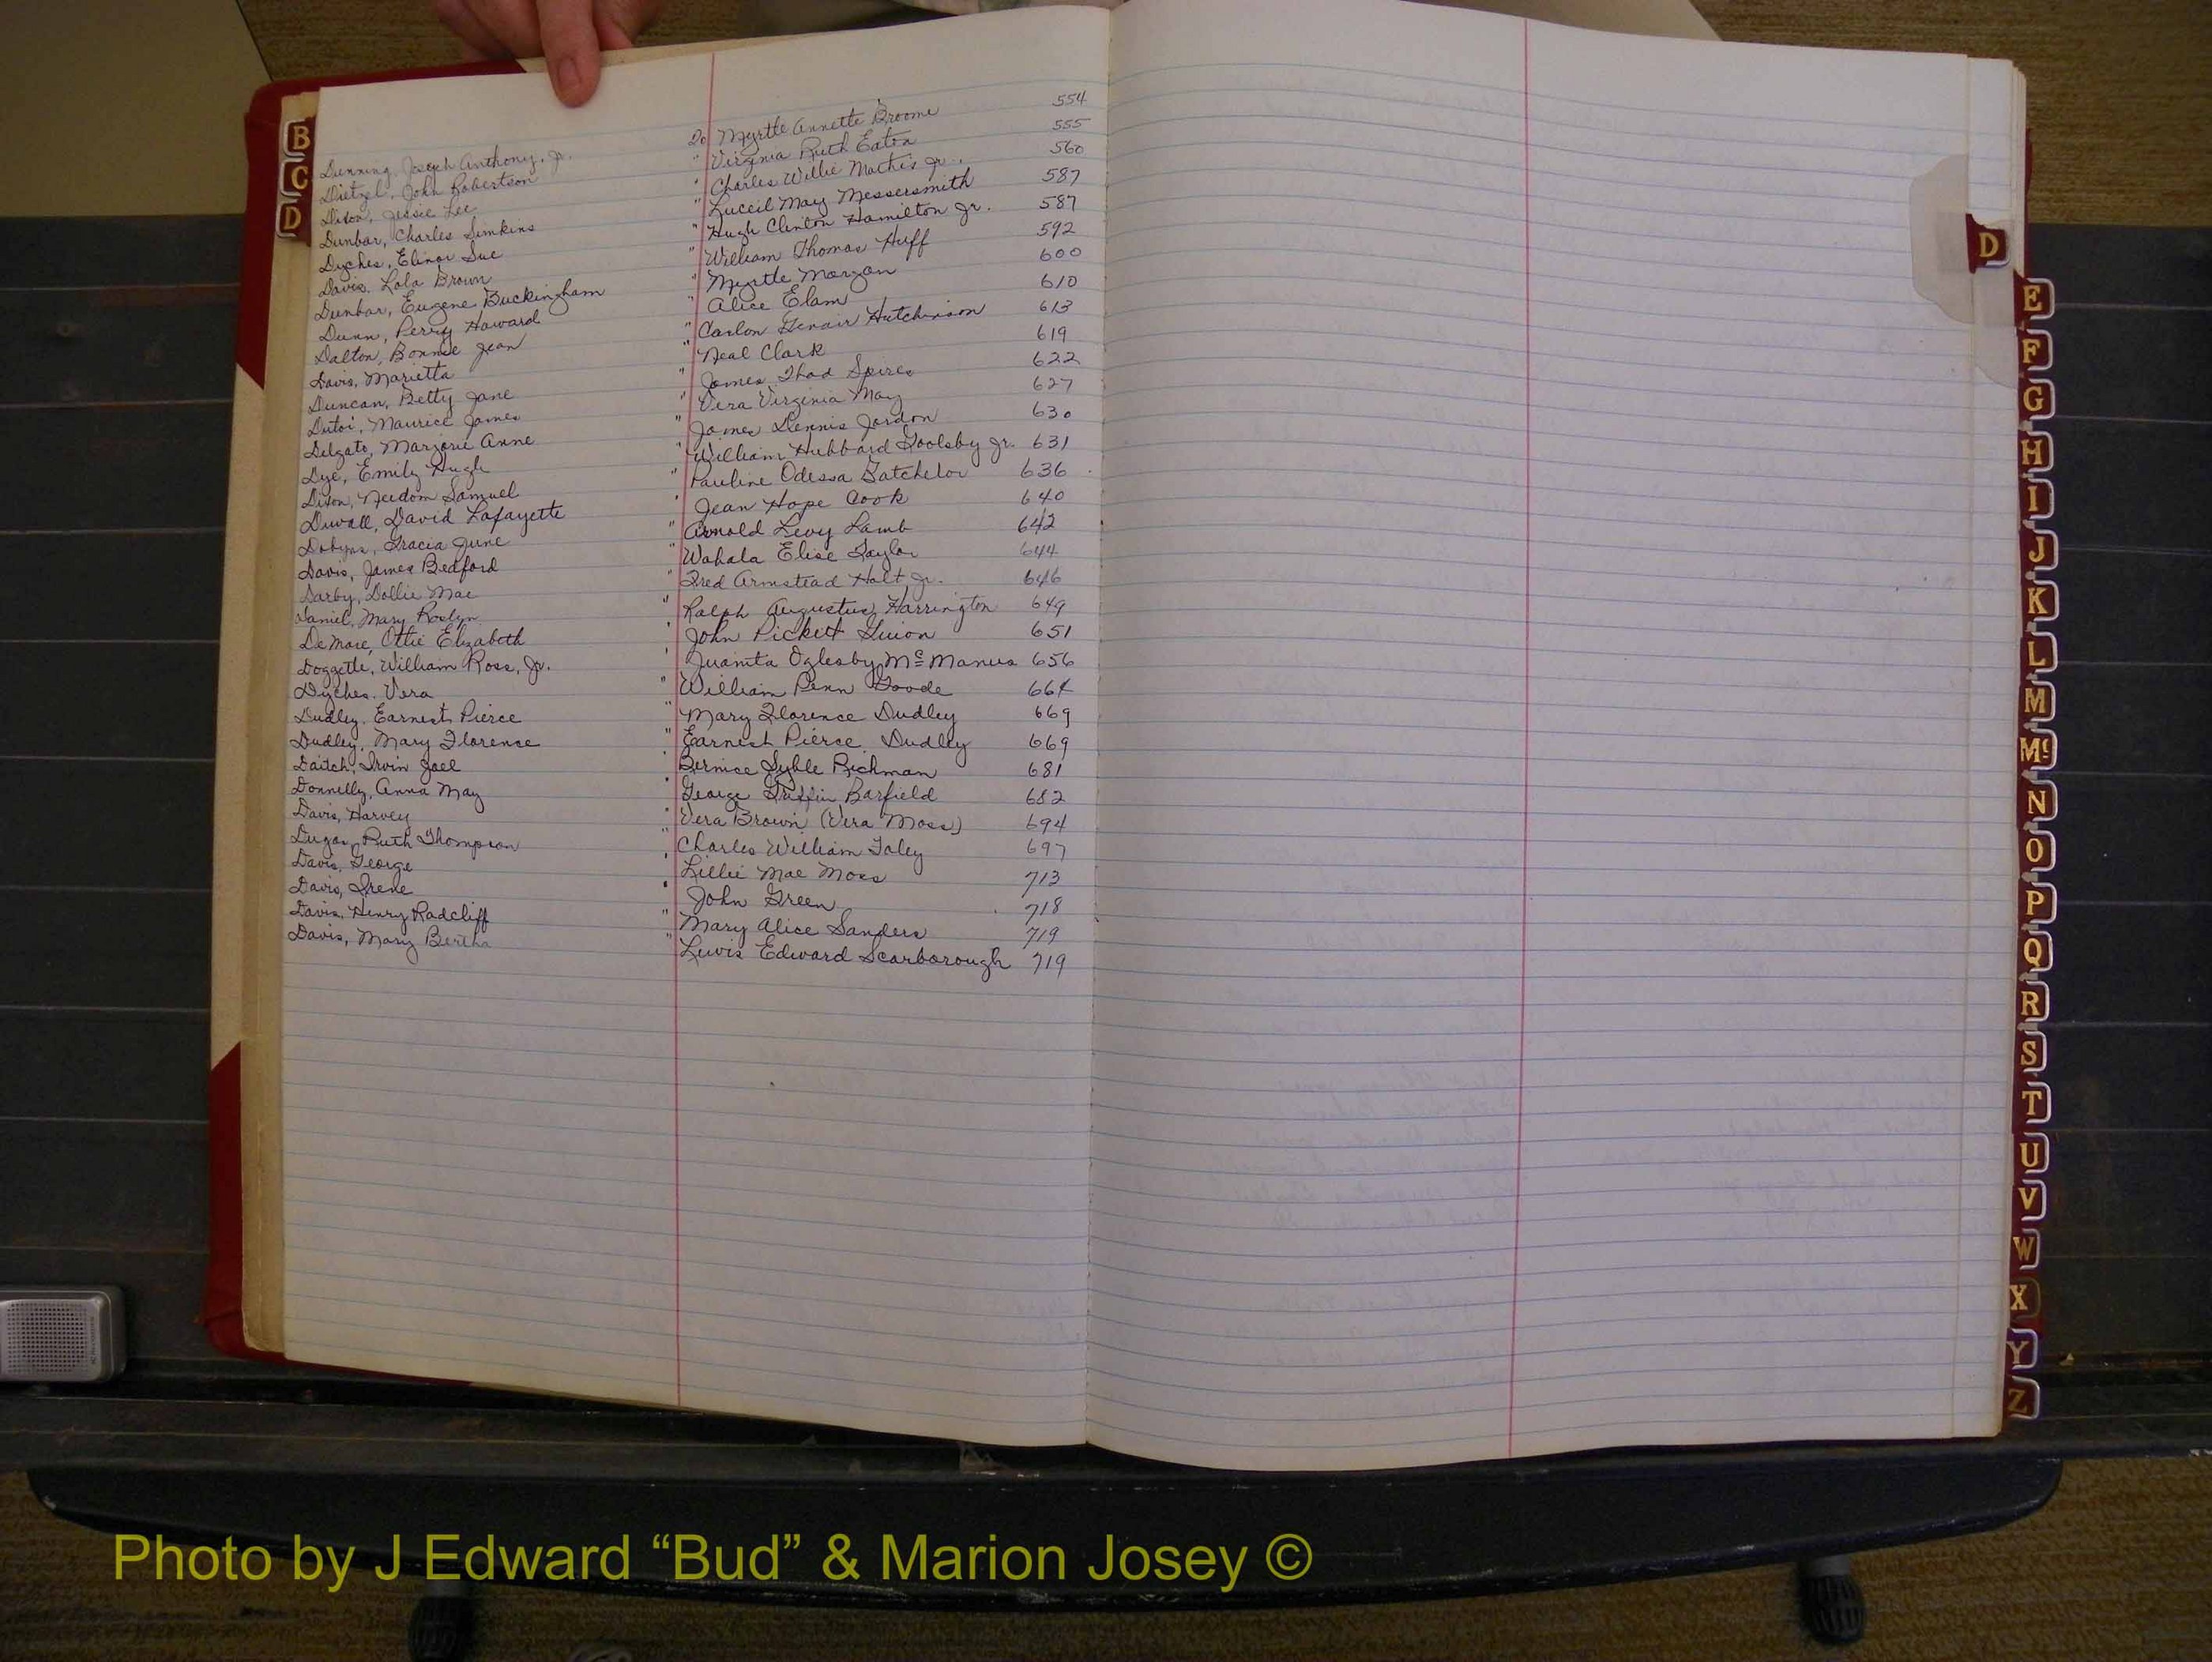 Dunning, Joseph Anthony, Jr. To Myrtle Annette Broome 554
Dietzel, John Robertson " Virginia Ruth Eaton 555
Dixon, Jessie Lee " Charles Willie Mathis Jr. 560
Dunbar, Charles Simkins " Luceil May Messersmith 587
Dyches, Elinor Sue " Hugh Clinton Hamilton Jr. 587
Davis, Lola Brown " William Thomas Huff 592
Dunbar, Eugene Buckingham " Myrtle Morgan 600
Dunn, Perry Howard " Alice Elam 610
Dalton, Bonnie Jean " Carlon Hutchinson 613
Davis, Marietta " Neal Clark 619
Duncan, Betty Jane " James Thad Spires 622
Maurice James " Vera Virginia May 627
Delgato, Marjorie Anne " James Dennis Jordon 630
Dye, Emily Hugh " William Hubbard Goolsby Jr. 631
Dixon, Needom Samuel " Pauline Odessa Batchelor 636
Duvall, David Lafayette " Jean Hope Cook 640
Dobyns, Gracia June " Arnold Levy Lamb 642
Davis, James Bedford " Wahala Elise Taylor 644
Darby, Dollie Mae " Fred Armstead Holt Jr. 646
Daniel, Mary Roslyn " Ralph Augustus Harrington 649
DeMore, Ottie Elizabeth " John Pickett Guion 651
Doggette, William Ross, Jr. " Juanita Oglesby McManus 656
Dyches, Vera " William Penn Goode 664
Dudley, Earnest Pierce " Mary Florence Dudley 669
Dudley, Mary Florence " Earnest Pierce Dudley 669
Daitch, Irvin Joel " Bernice Syble Richman 681
Donnelly, Anna May " George Griffin Barfield 682
Davis, Harvey " Vera Brown (Vera Moss) 694
Dugan, Ruth Thompson " Charles William Foley 697
Davis, George " Lillie Mae Moss 713
Davis, Irene " John Green 718
Davis, Henry Radcliff " Mary Alice Sanders 719
Davis, Mary Bertha " Lewis Edward Scarborough 719
B
C
D
D
E
F
G
H
I
J
K
L
M
Mc
N
O
P
Q
R
S
T
U
V
W
X
Y
Z
Photo by J Edward “Bud” & Marion Josey ©